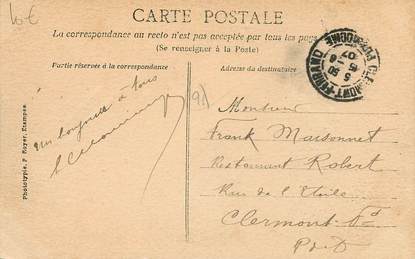 10 €
CARTE POSTALE
La correspondance au recto n'est pas acceptée par tous les pays
(Se renseigner à la Poste)
Partie réservée à la correspondance
Adresse du destinataire
CLERMONT-FERRAND
PUY-DE-DOME
un bonjour à tous
(91)
Monsieur
Frank Maisonnet
Restaurant Robert
Rue de l'Etoile
Clermont-Fd
P-de-D
Phototypie, P. Royer, Etampes